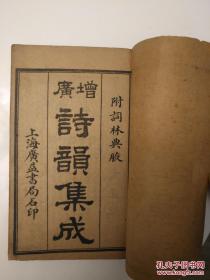 增廣
附詞林典腋
詩韻集成
上海廣益書局石印